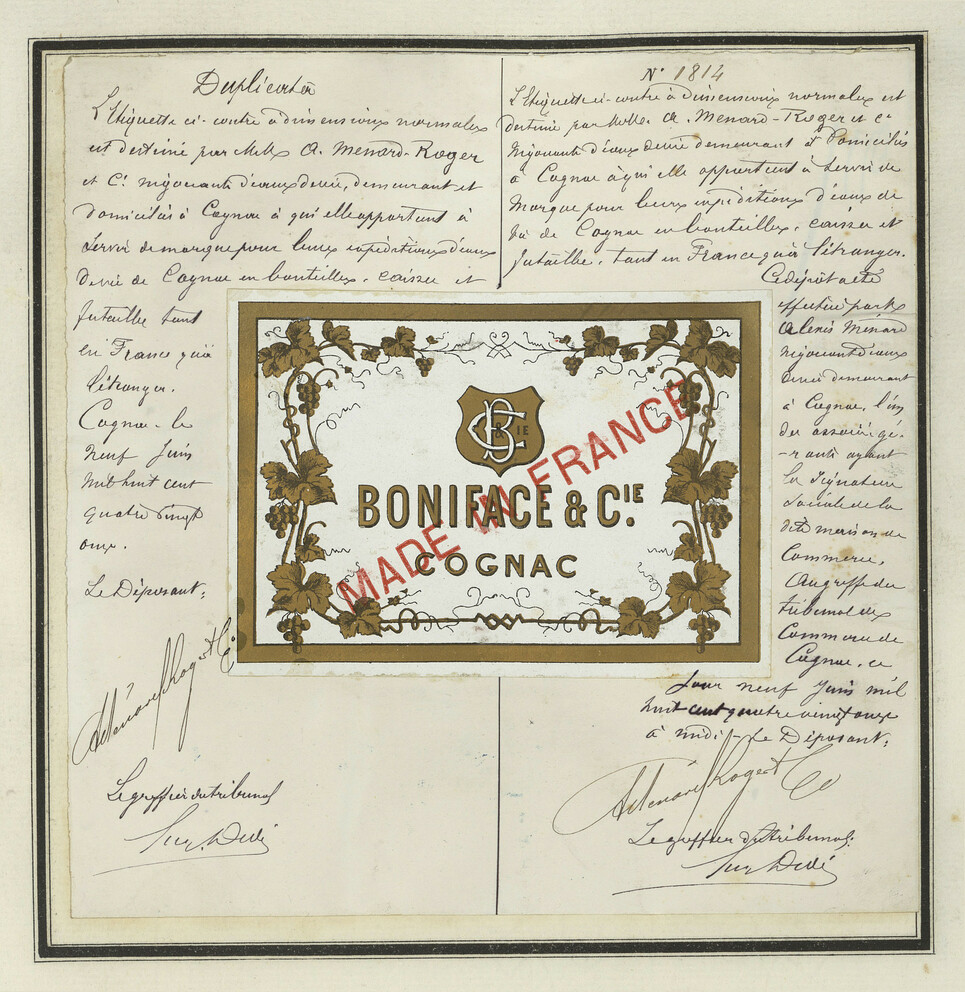 Duplicata
L'Etiquette ci-contre à dimensions normales
est destinée par MM. A. Menard-Roger
et Cie négociants d'eaux de vie, demeurant et
domiciliés à Cognac à qui elle appartient à
servir de marque pour leurs expéditions d'eaux
de vie de Cognac en bouteilles, caisses et
futailles tant
en France qu'à
l'étranger.
Cognac, le
neuf Juin
mil huit cent
quatre vingt
onze.
Le Déposant,
A Menard Roger & Co
Le greffier du tribunal
N° 1814
L'Etiquette ci-contre à dimensions normales est
destinée par MM. A. Menard-Roger et Cie
négociants d'eaux de vie demeurant et domiciliés
à Cognac à qui elle appartient à servir de
marque pour leurs expéditions d'eaux de
vie de Cognac en bouteilles, caisses et
futailles, tant en France qu'à l'étranger.
Ce dépôt a été
effectué par Mr
Alexis Ménard
négociant d'eaux
de vie demeurant
à Cognac, l'un
des associés gé-
-rants ayant
la signature
sociale de la
dite maison de
Commerce,
Au greffe du
tribunal de
Commerce de
Cognac, ce
jour neuf Juin mil
huit cent quatre vingt onze
à midi. Le Déposant,
A Menard Roger & Co
Le greffier du tribunal,
B C & IE
BONIFACE & CIE.
COGNAC
MADE IN FRANCE